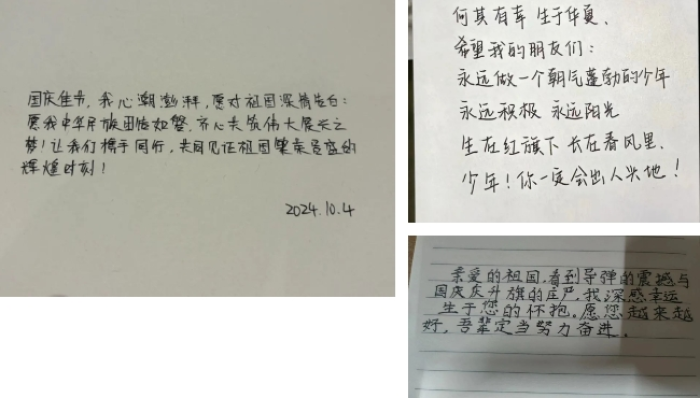 国庆佳节，我心潮澎湃，愿对祖国深情告白：
愿我中华民族团结如磐，齐心共筑伟大复兴之
梦！让我们携手同行，共同见证祖国繁荣昌盛的
辉煌时刻！
2024.10.4
何其有幸 生于华夏、
希望我的朋友们：
永远做一个朝气蓬勃的少年
永远积极 永远阳光
生在红旗下 长在春风里、
少年！你一定会出人头地！
亲爱的祖国，看到导弹的震撼与
国庆庆升旗的庄严，我深感幸运
生于您的怀抱。愿您越来越
好，吾辈定当努力奋进。